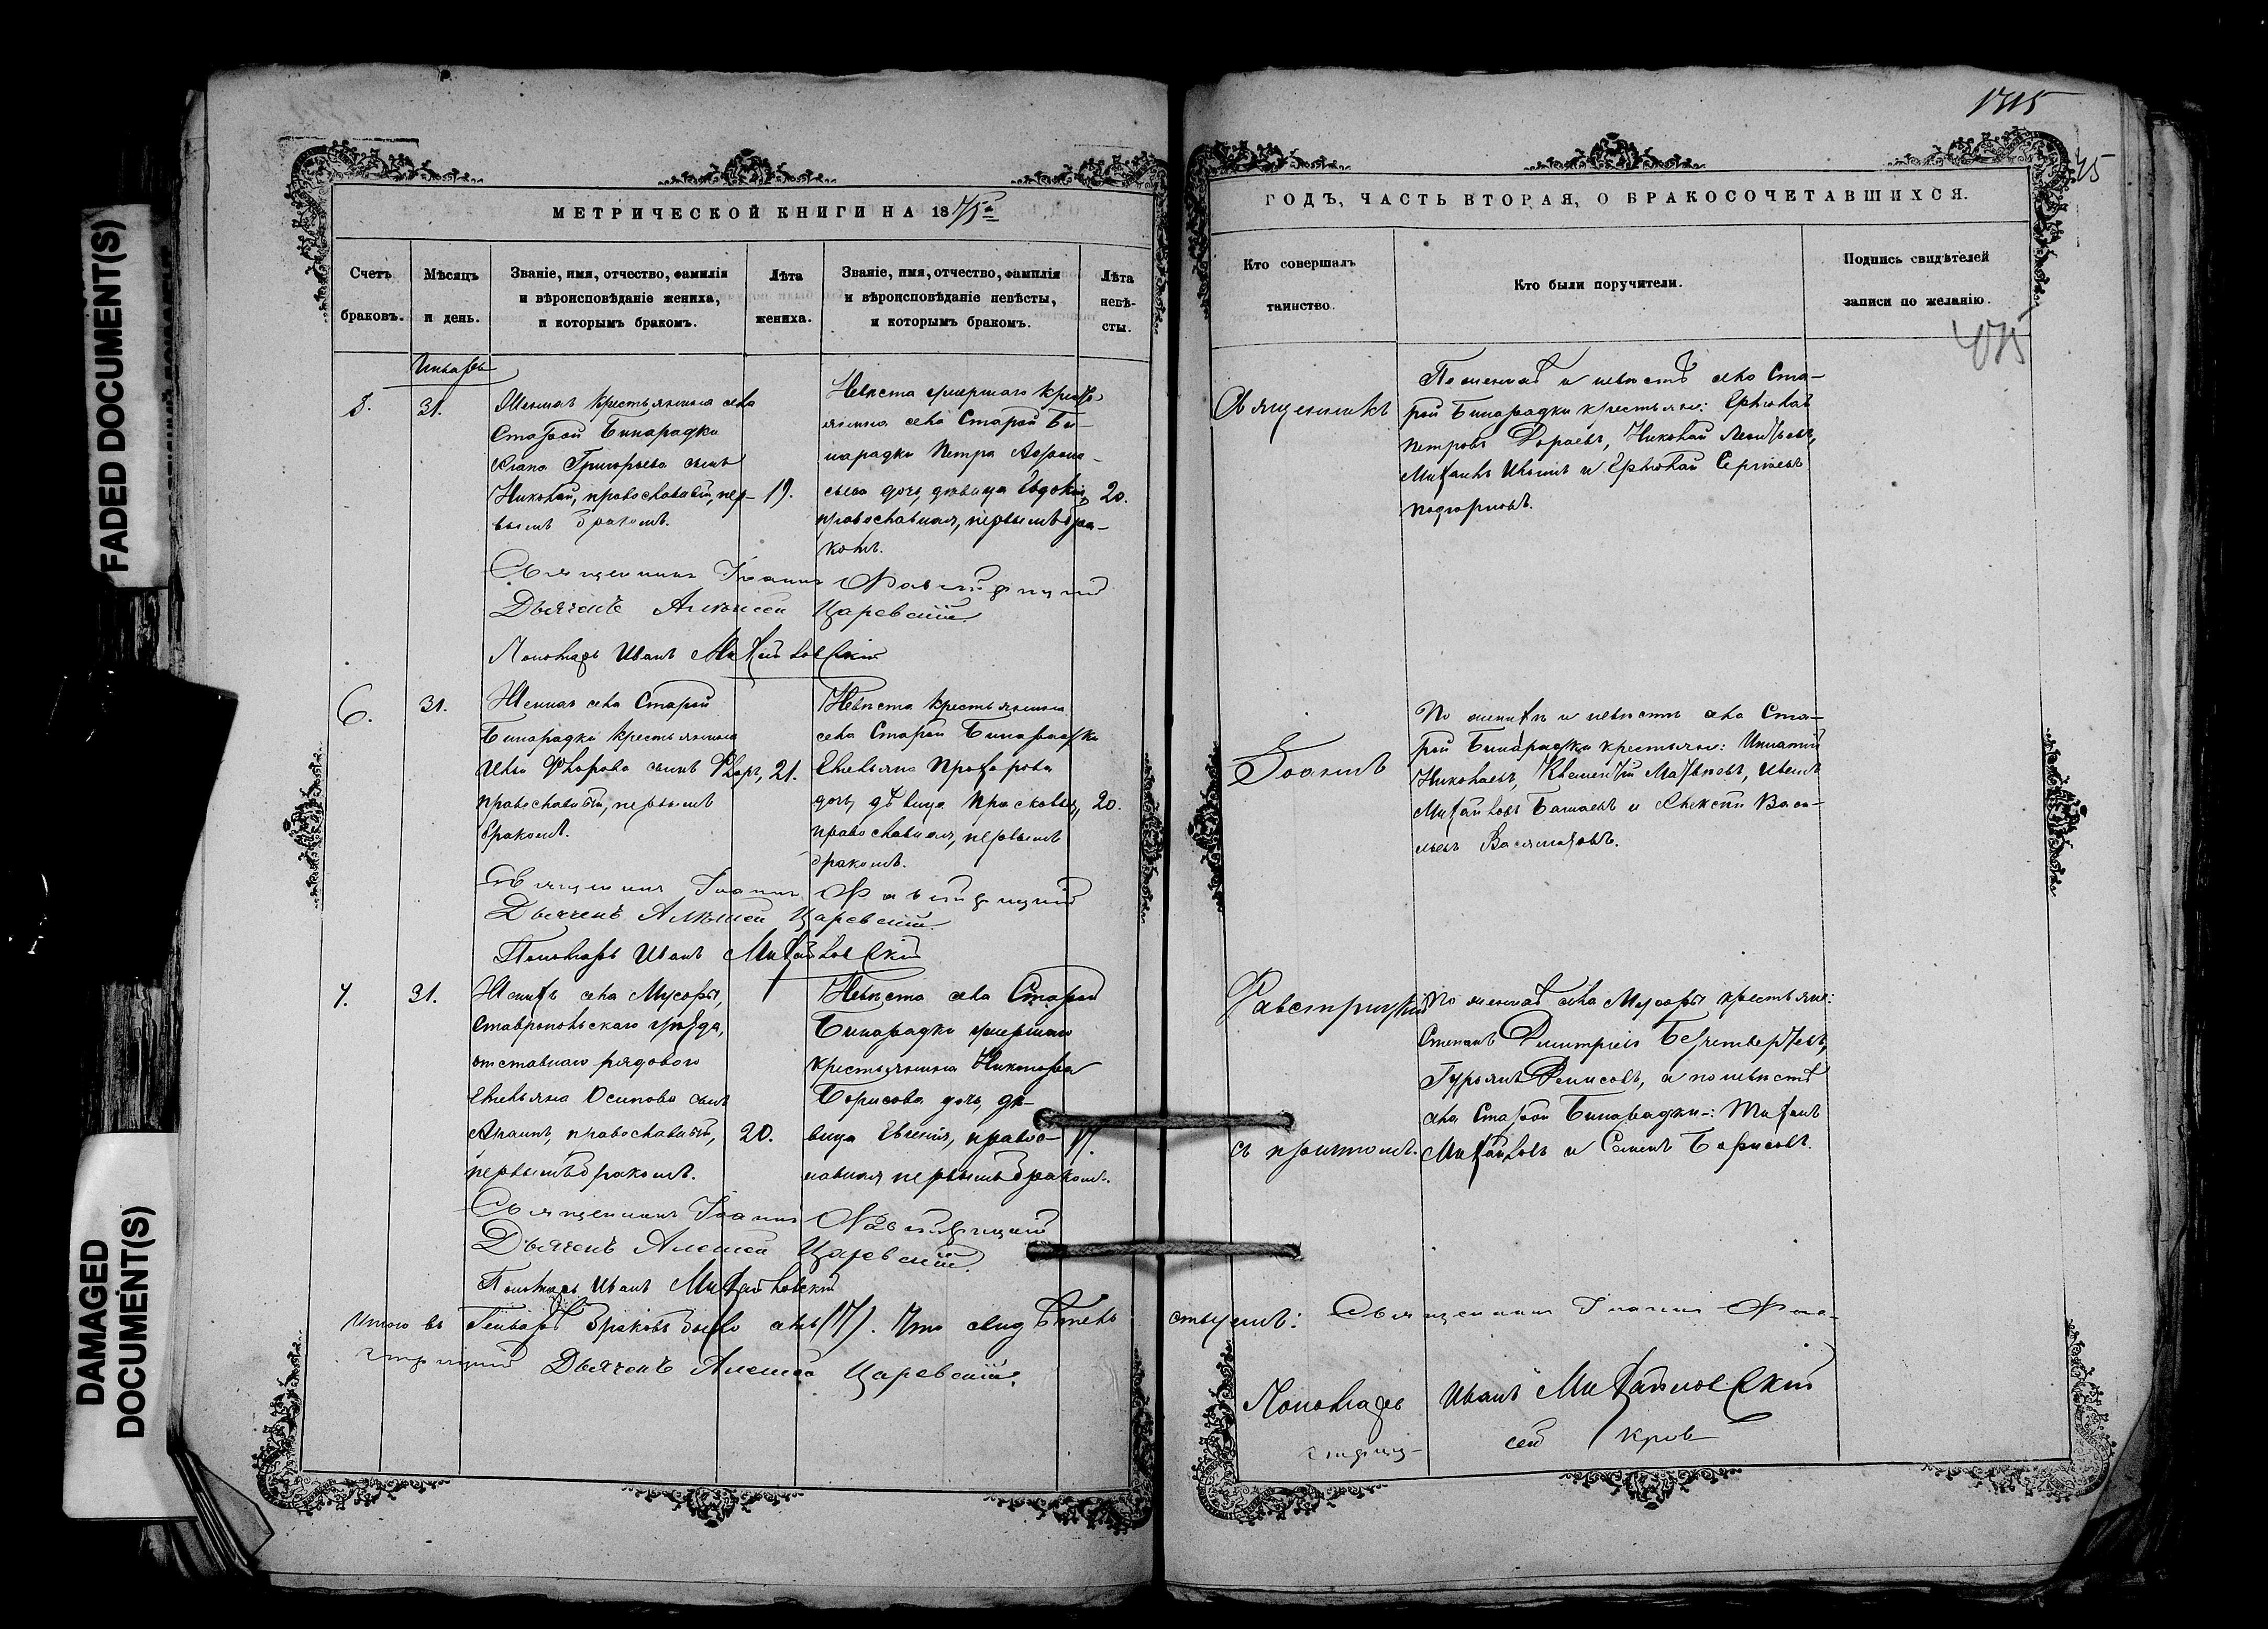 FADED DOCUMENT(S)
DAMAGED
DOCUMENT(S)
МЕТРИЧЕСКОЙ КНИГИ НА 1875й
Счетъ
браковъ.
Мѣсяцъ
и день.
Званіе, имя, отчество, фамилія
и вѣроисповѣданіе жениха,
и которымъ бракомъ.
Лѣта
жениха.
Званіе, имя, отчество, фамилія
и вѣроисповѣданіе невѣсты,
и которымъ бракомъ.
Лѣта
невѣ-
сты.
5.
31.
Женихъ крестьянина села
Старой Бинарадки
Григорьева сынъ
Николай, православный, пер-
вымъ бракомъ.
19.
Невѣста умершаго кресть-
янина села Старой Би-
нарадки Петра
дочь, дѣвица Евдокія,
православная, первымъ бра-
комъ.
20.
Священникъ Іоаннъ Фавстрицкій
Дьячекъ Алексей Царевскій
Пономарь Иванъ Михайловскій
6.
31.
Женихъ села Старой
Бинарадки крестьянина
Ильи Флорова сынъ Флоръ,
православный, первымъ
бракомъ.
21.
Невѣста крестьянина
села Старой Бинарадки
Емельяна Прохорова
дочь, дѣвица Прасковья,
православная, первымъ
бракомъ.
20.
Священникъ Іоаннъ Фавстрицкій
Дьячекъ Алексей Царевскій
Пономарь Иванъ Михайловскій
7.
31.
Женихъ села Мусоры,
Ставропольскаго уѣзда,
отставнаго рядоваго
Емельяна Осипова сынъ
православный,
первымъ бракомъ.
20.
Невѣста села Старой
Бинарадки умершаго
крестьянина Никифора
Борисова дочь, дѣ-
вица Евгенія, правос-
лавная первымъ бракомъ.
Священникъ Іоаннъ Фавстрицкій
Дьячекъ Алексей Царевскій
Пономарь Иванъ Михайловскій
Итого въ Генварѣ браковъ было семь (7). Что свидѣтель
Дьячекъ Алексей Царевскій.
1315
ГОДЪ, ЧАСТЬ ВТОРАЯ, О БРАКОСОЧЕТАВШИХСЯ.
Кто совершалъ
таинство.
Кто были поручители.
Подпись свидѣтелей
записи по желанію.
Священникъ
По женихѣ и невѣстѣ села Ста-
рой Бинарадки крестьяне:
Петровъ Николай Леонтьевъ,
Михаилъ и Сергіевъ
Іоаннъ
По женихѣ и невѣстѣ села Ста-
рой Бинарадки крестьяне: Игнатій
Николаевъ, Климентій Матвѣевъ, Иванъ
Михайловъ и Алексѣй Васи-
льевъ
Фавстрицкій
съ причтомъ.
По женихѣ села Мусоры крестьяне:
Степанъ Димитріевъ Безчетвертевъ,
Гурьянъ Денисовъ, а по невѣстѣ
села Старой Бинарадки:
Михайловъ и Семенъ Борисовъ.
ствуемъ: Священникъ Іоаннъ
Пономарь Иванъ Михайловскій